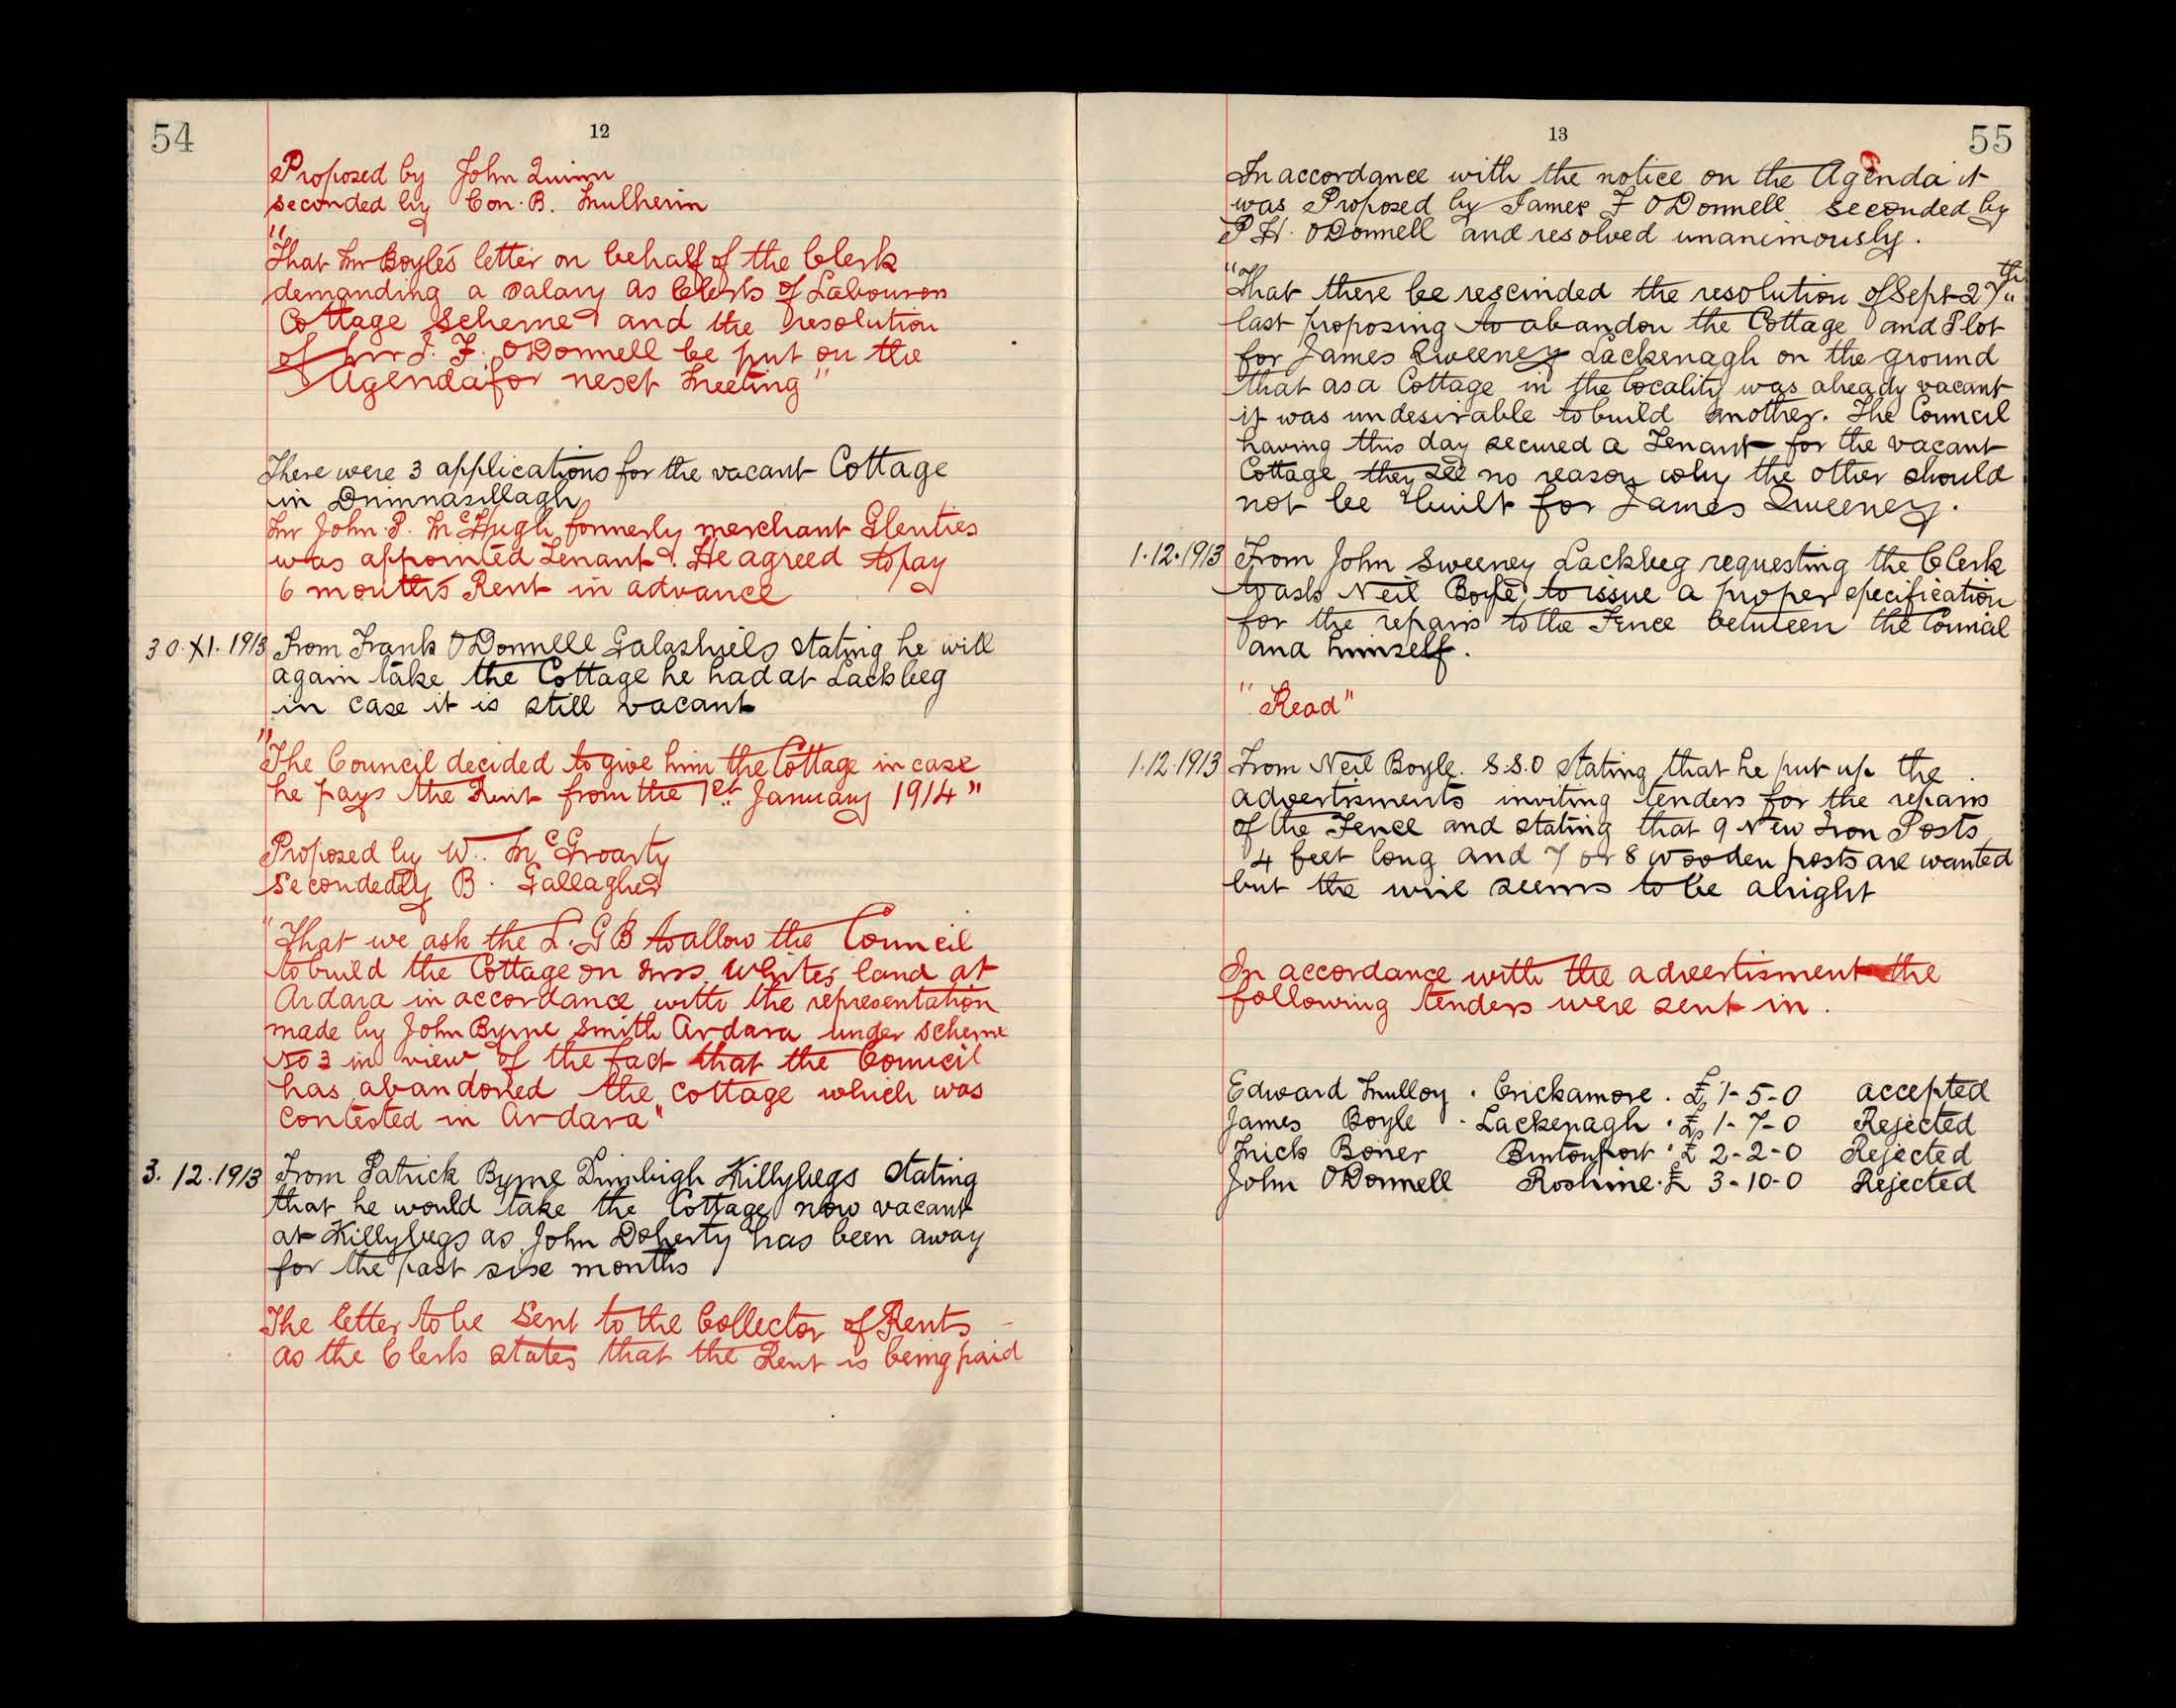 54
12
Proposed by John Quinn
seconded by Con. B. Mulherin
"That Mr Boyle's letter on behalf of the Clerk
demanding a salary as Clerk of Labourers
Cottage Scheme and the resolution
of Mr J. F. ODonnell be put on the
Agenda for next Meeting"
There were 3 applications for the vacant Cottage
in Drimnasillagh
Mr John P. McHugh formerly merchant Glenties
was appointed Tenant. He agreed to pay
6 months Rent in advance
30.XI.1913 From Frank ODonnell Galashiels stating he will
again take the Cottage he had at Lackbeg
in case it is still vacant
"The Council decided to give him the Cottage in case
he pays the Rent from the 1st January 1914"
Proposed by W. McGroarty
seconded by B. Gallagher
"That we ask the L.G B to allow the Council
to build the Cottage on Mrs. Whites land at
Ardara in accordance with the representation
made by John Byrne Smith Ardara under scheme
No 3 in view of the fact that the Council
has abandoned the cottage which was
contested in Ardara"
3.12.1913 From Patrick Byrne Killybegs stating
that he would take the Cottage now vacant
at Killybegs as John Doherty has been away
for the past six months
The letter to be sent to the Collector of Rents
as the Clerk states that the Rent is being paid
13
55
In accordance with the notice on the Agenda it
was Proposed by James F ODonnell seconded by
P H. ODonnell and resolved unanimously.
"That there be rescinded the resolution of Sept 27th
last proposing to abandon the Cottage and Plot
for James Sweeney Lackenagh on the ground
that as a Cottage in the locality was already vacant
it was undesirable to build another. The Council
having this day secured a Tenant for the vacant
Cottage they see no reason why the other should
not be built for James Sweeney.
1.12.1913 From John Sweeney Lackbeg requesting the Clerk
to ask Neil Boyle to issue a proper specification
for the repairs to the Fence between the Council
and himself.
"Read"
1.12.1913 From Neil Boyle. S.S.O stating that he put up the
advertisments inviting tenders for the repairs
of the Fence and stating that 9 New Iron Posts
4 feet long and 7 or 8 wooden posts are wanted
but the wire seems to be alright
In accordance with the advertisment the
following tenders were sent in.
Edward Mulloy . Crickamore . £1-5-0 accepted
James Boyle . Lackenagh . £1-7-0 Rejected
Mick Boner Burtonport . £2-2-0 Rejected
John ODonnell Roshine . £3-10-0 Rejected